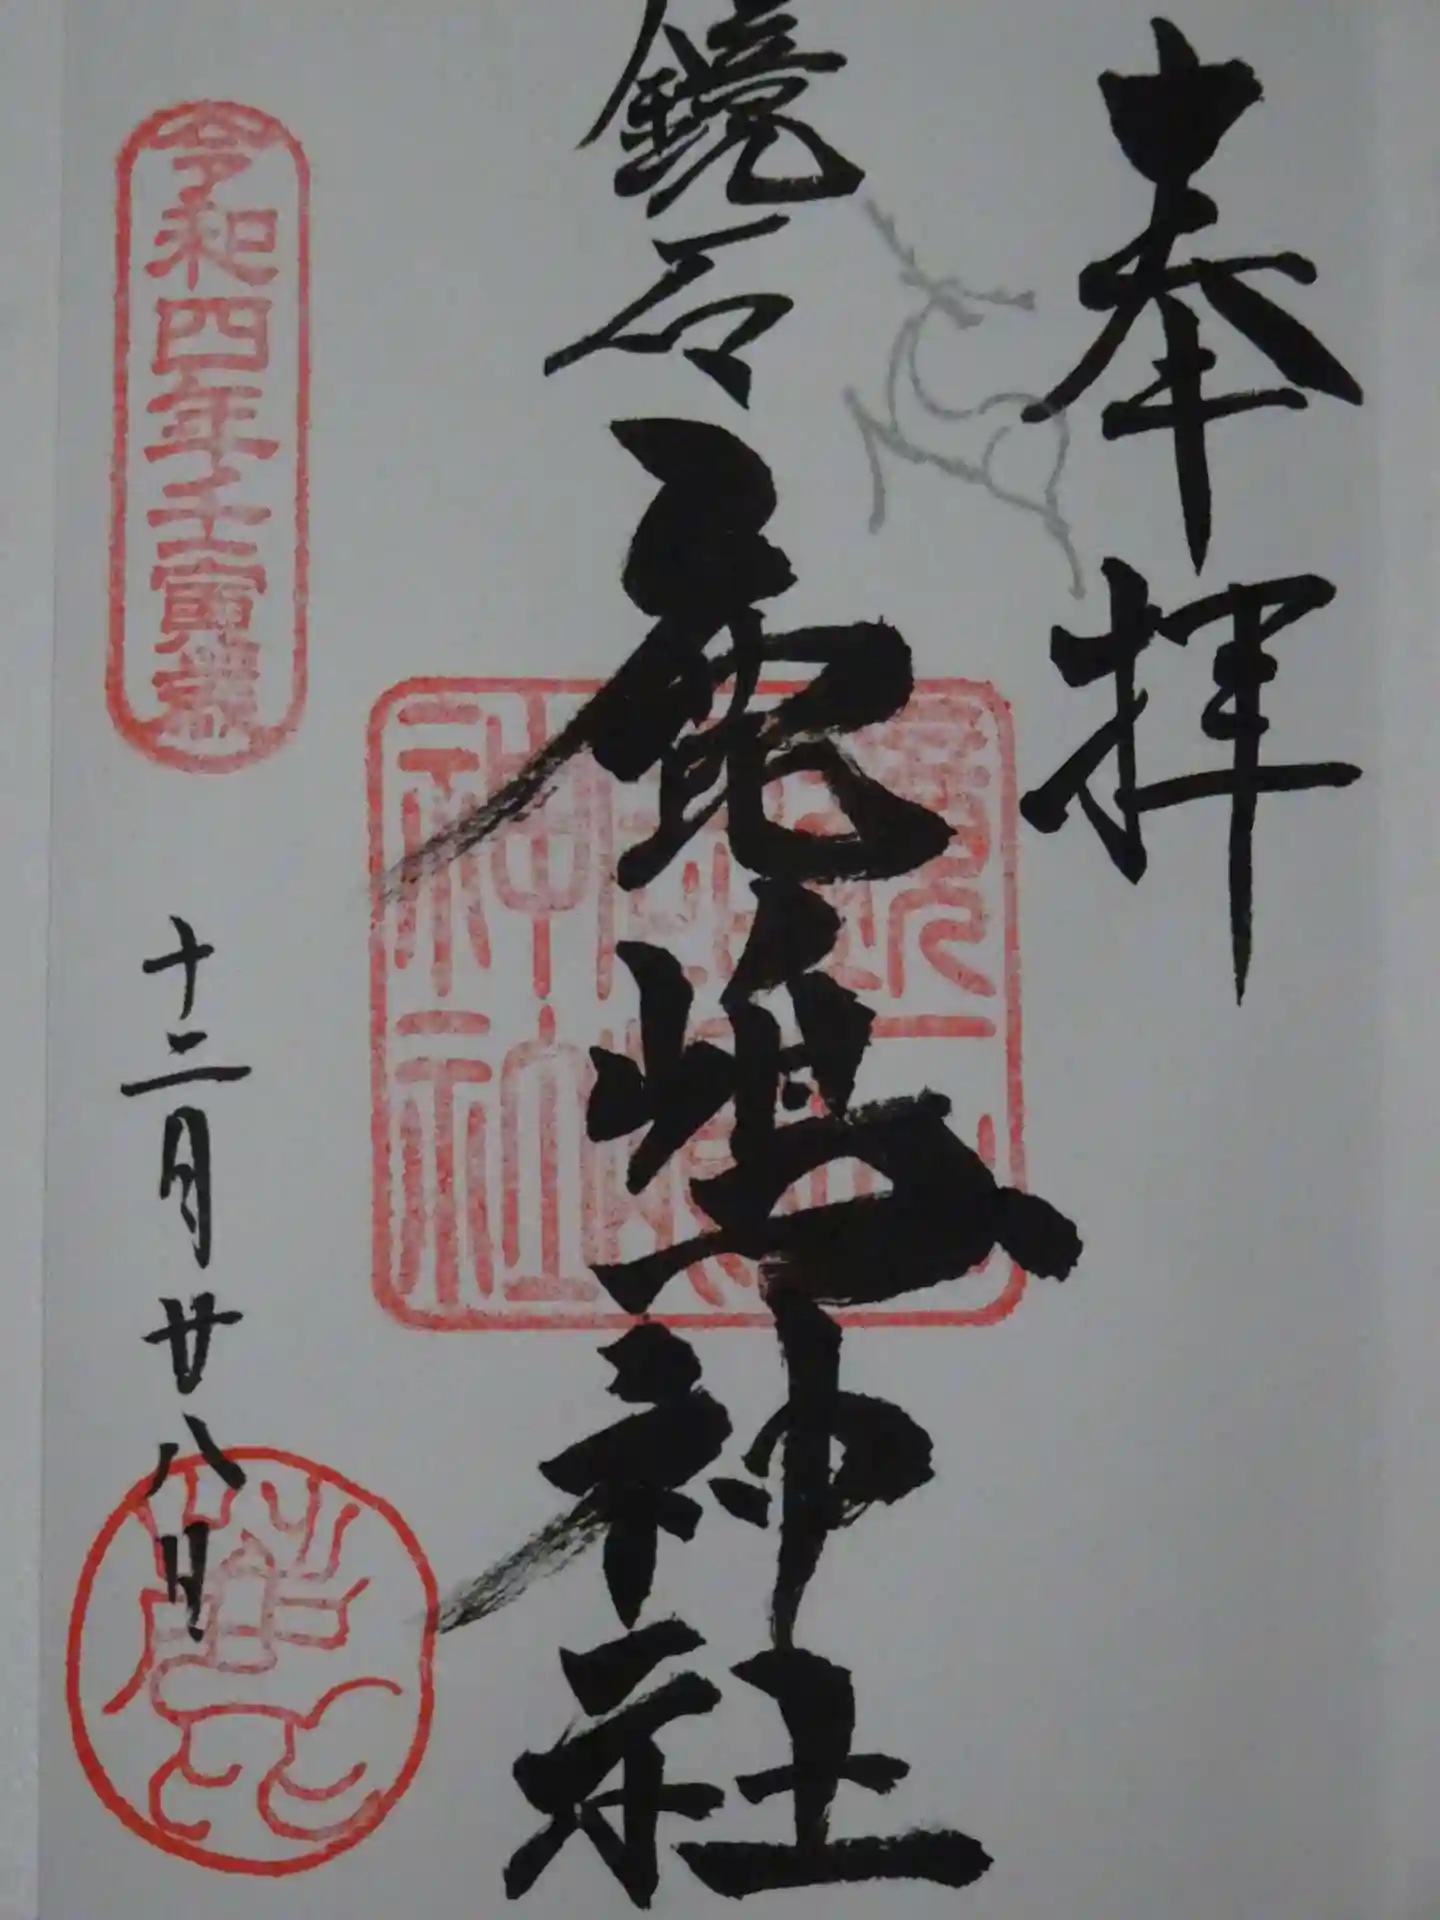 奉拝
鏡石
鹿嶋神社
鏡石
鹿嶋
神社
令和四年壬寅歳
十二月廿八日